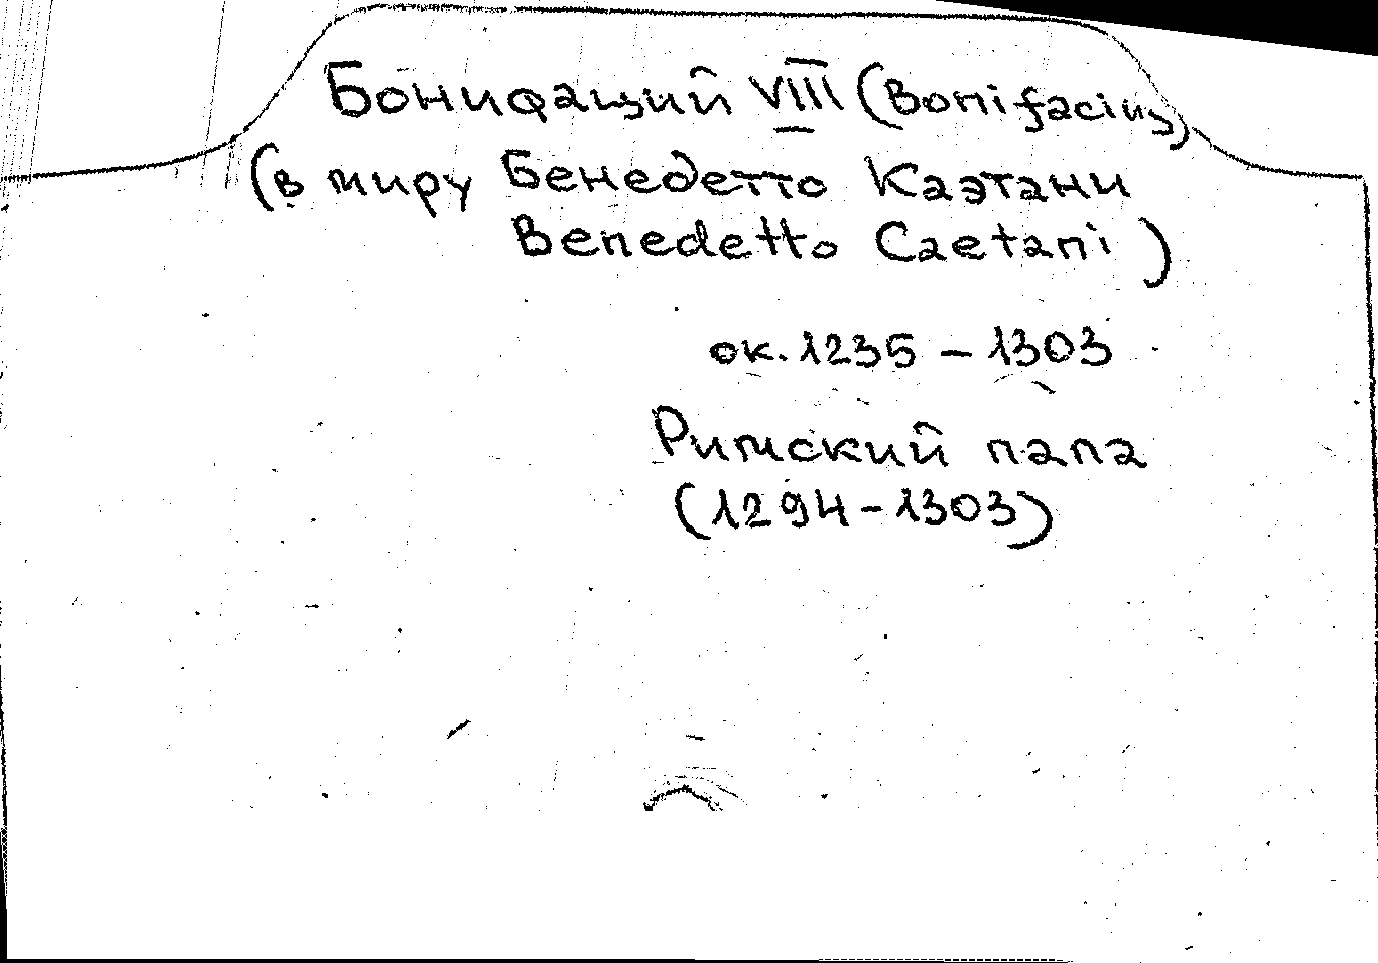 Бонифаций VIII (Bonifacius)
(в миру Бенедетто Каэтани
Benedetto Caetani)
ок. 1235 – 1303
Римский папа
(1294 – 1303)